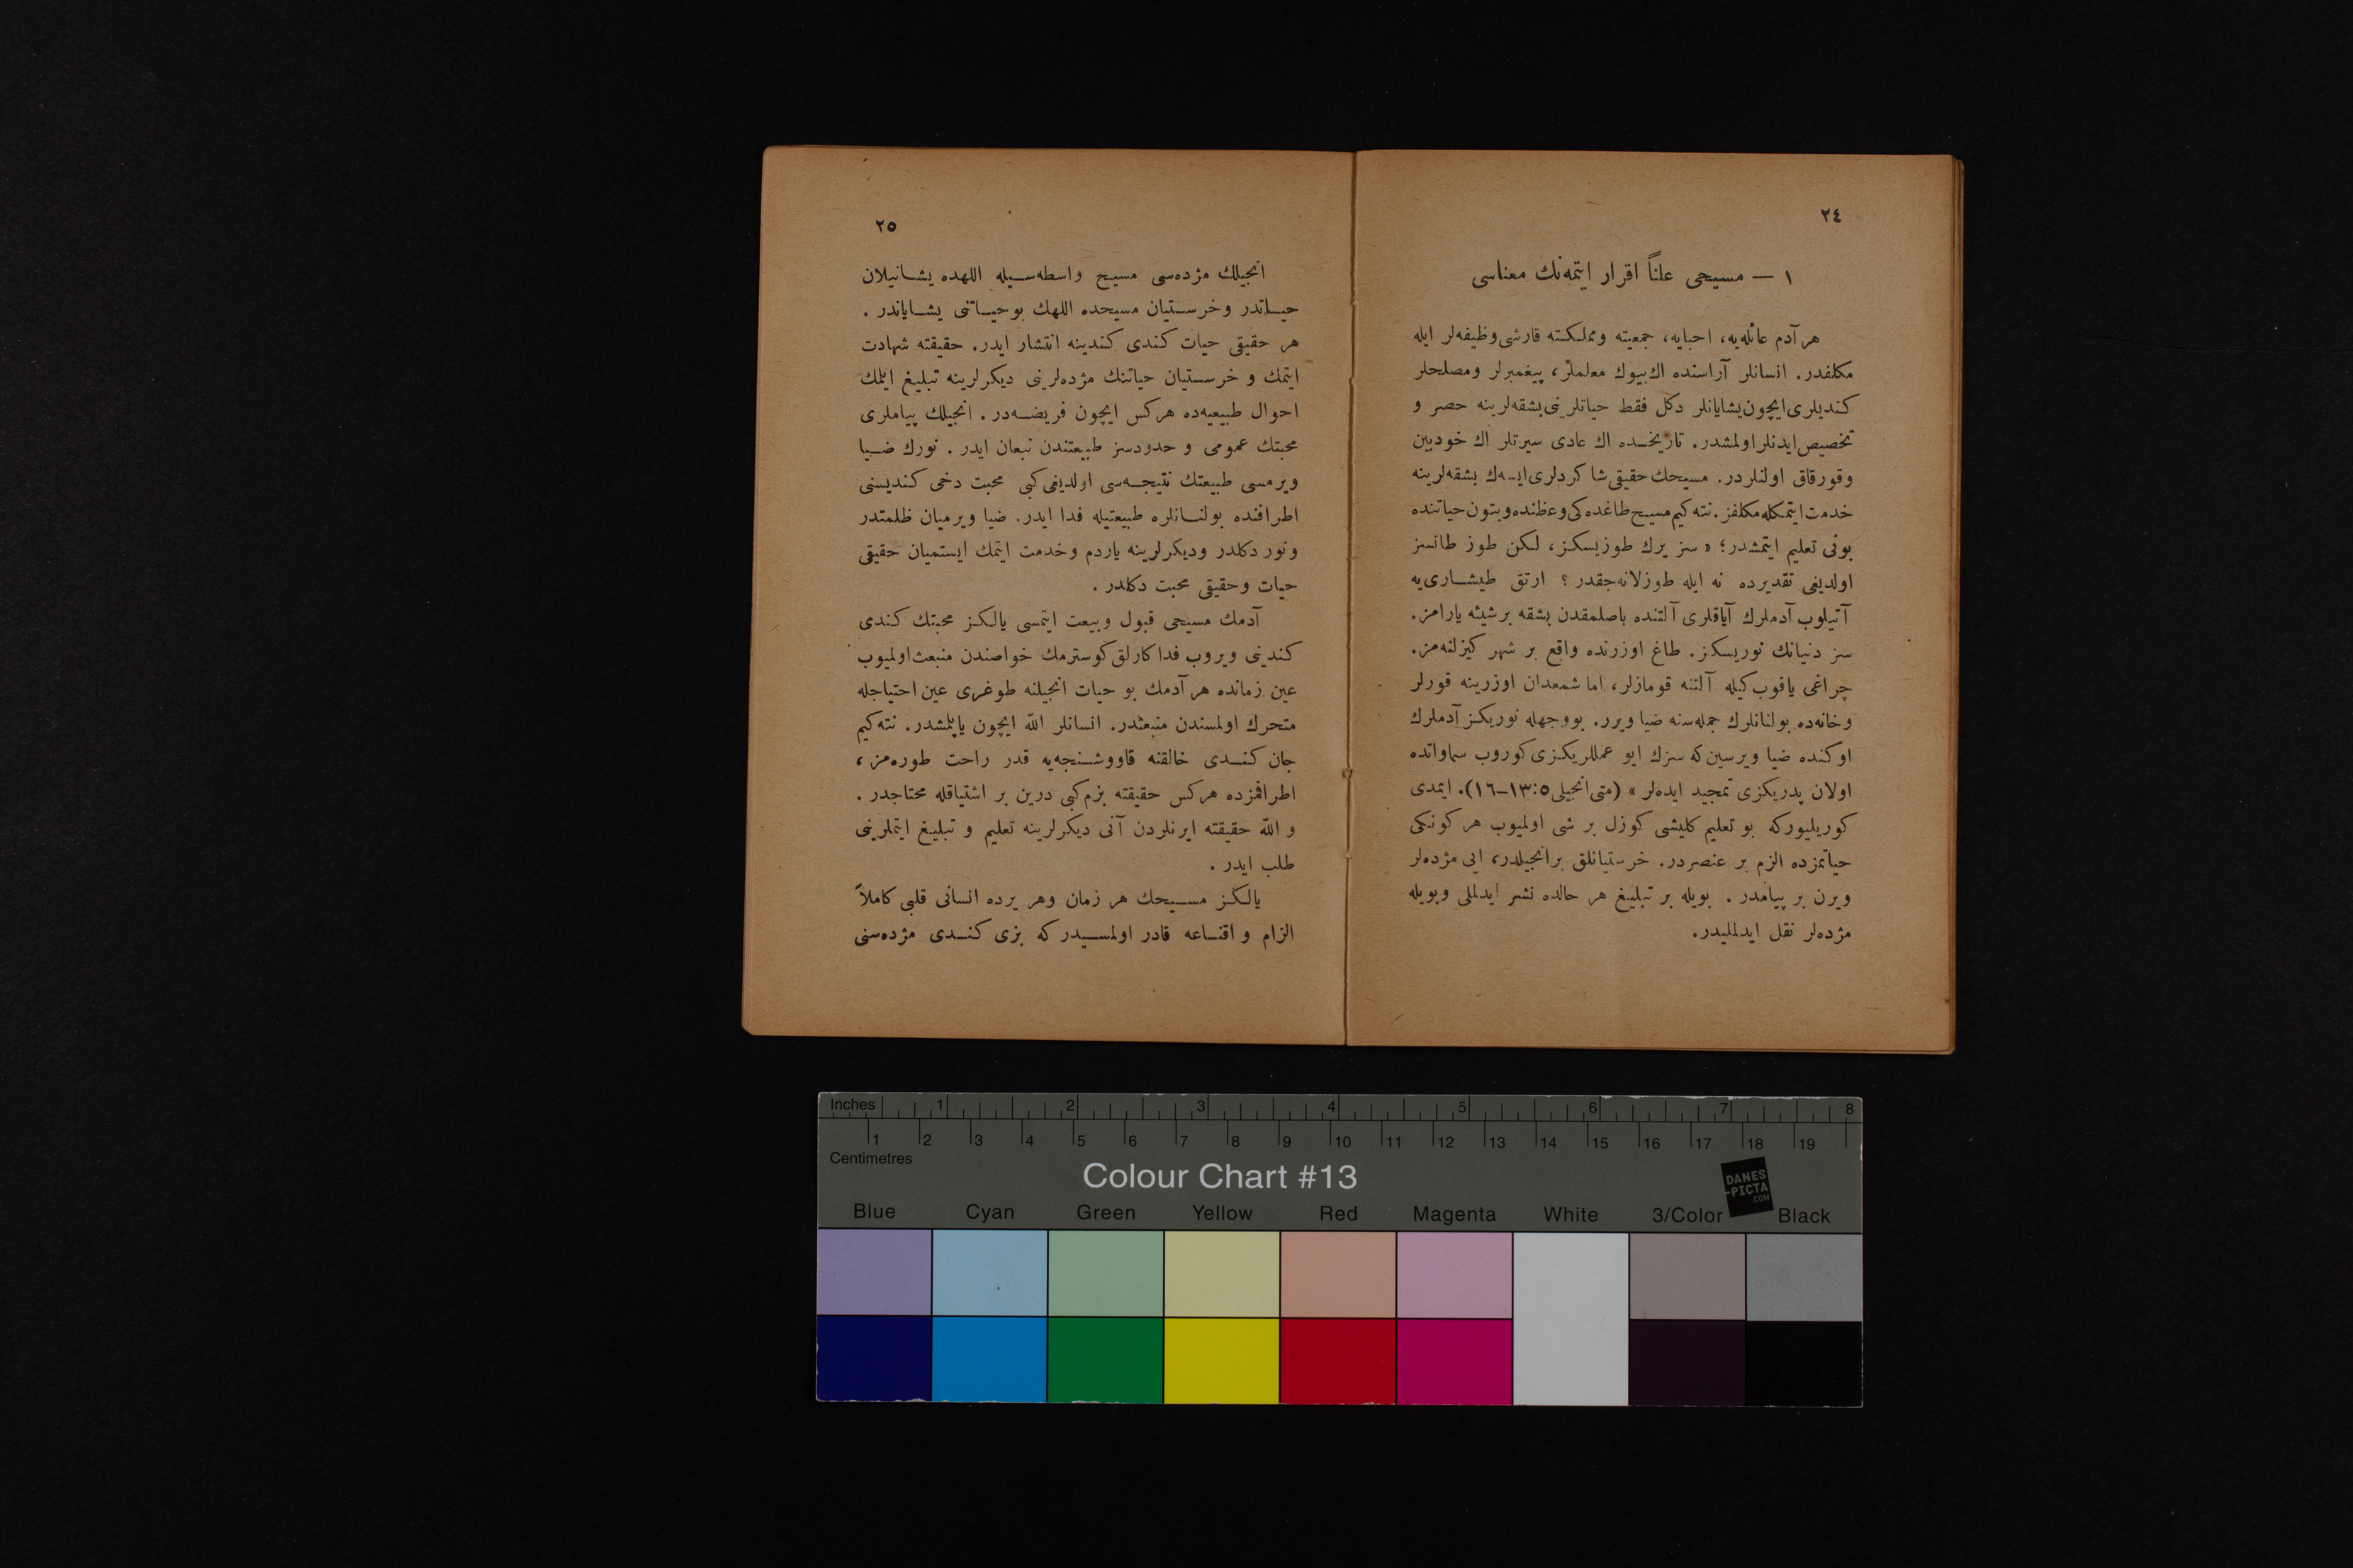 ٢٤
١ — مسیحی علناً اقرار ایتمه‌نك معناسی
هر آدم عائله‌یه، احبایه، جمعیته ومملکته قارشی وظیفه‌لر ایله
مکلفدر. انسانلر آراسنده اك بیوك معلملر، پیغمبرلر ومصلحلر
کندیلری ایچون یشایانلر دکل فقط حیاتلرینی بشقه‌لرینه حصر و
تخصیص ایدنلر اولمشدر. تاریخـده اك عادی سیرتلر اك خودبین
وقورقاق اولنلردر. مسیحك حقیقی شاکردلری ایسه‌ك بشقه‌لرینه
خدمت ایتمکله مکلفز. نته کیم مسیح طاغده کی وعظنده وبتون حیاتنده
بونی تعلیم ایتمشدر؛ « سز یرك طوزیسکز، لکن طوز طاتسز
اولدیغی تقدیرده نه ایله طوزلانه‌جقدر ؟ ارتق طیشـاری‌یه
آتیلوب آدملرك آیاقلری آلتنده باصلمقدن بشقه برشیئه یارامز.
سز دنیانك نوریسکز. طاغ اوزرنده واقع بر شهر کیزلنه‌مز.
چراغی یاقوب کیله آلتنه قومازلر، اما شمعدان اوزرینه قورلر
وخانه‌ده بولنانلرك جمله‌سنه ضیا ویرر. بووجهله نوریکز آدملرك
اوکنده ضیا ویرسین که سزك ایو عمللریکزی کوروب سماواتده
اولان پدریکزی تمجید ایده‌لر » (متی انجیلی ٥:١٣–١٦). ایمدی
کوریلیورکه بو تعلیم کلیشی کوزل بر شی اولمیوب هر کونکی
حیاتمزده الزم بر عنصردر. خرستیانلق برانجیلدر، ایی مژده‌لر
ویرن بر پیامدر . بویله بر تبلیغ هر حالده نشر ایدلملی وبویله
مژده‌لر نقل ایدلملیدر.
٢٥
انجیلك مژده‌سی مسیح واسطه‌سـیله اللهده یشـانیلان
حیـاتدر وخرسـتیان مسیحده اللهك بوحیـاتنی یشـایاندر .
هر حقیقی حیات کندی کندینه انتشار ایدر. حقیقته شهادت
ایتمك و خرسـتیان حیاتنك مژده‌لرینی دیکرلرینه تبلیغ ایلمك
احوال طبیعیه‌ده هرکس ایچون فریضـه‌در . انجیلك پیاملری
محبتك عمومی و حدودسز طبیعتندن نبعان ایدر . نورك ضـیا
ویرمسی طبیعتك نتیجـه‌سی اولدیغی کبی محبت دخی کندیسنی
اطرافنده بولنـانلره طبیعتیله فدا ایدر. ضیا ویرمیان ظلمتدر
ونور دکلدر ودیکرلرینه یاردم وخدمت ایتمك ایستمیان حقیقی
حیات وحقیقی محبت دکلدر .
آدمك مسیحی قبول وبیعت ایتمسی یالکز محبتك کندی
کندینی ویروب فداکارلق کوسترمك خواصندن منبعث اولمیوب
عین زمانده هر آدمك بو حیات انجیلنه طوغری عین احتیاجله
متحرك اولمسندن منبعثدر. انسانلر الله ایچون یاپلمشدر. نته کیم
جان کنـدی خالقنه قاووشـنجه‌یه قدر راحت طوره‌مز ،
اطرافمزده هرکس حقیقته بزم کبی درین بر اشتیاقله محتاجدر .
و الله حقیقته ایرنلردن آنی دیکرلرینه تعلیم و تبلیغ ایتملرینی
طلب ایدر .
یالکز مسـیحك هر زمان وهر یرده انسانی قلبی کاملاً
الزام و اقنـاعه قادر اولمسـیدر که بزی کنـدی مژده‌سنی
Inches 1 2 3 4 5 6 7 8
1 2 3 4 5 6 7 8 9 10 11 12 13 14 15 16 17 18 19
Centimetres
Colour Chart #13
DANES
-PICTA
.COM
Blue Cyan Green Yellow Red Magenta White 3/Color Black